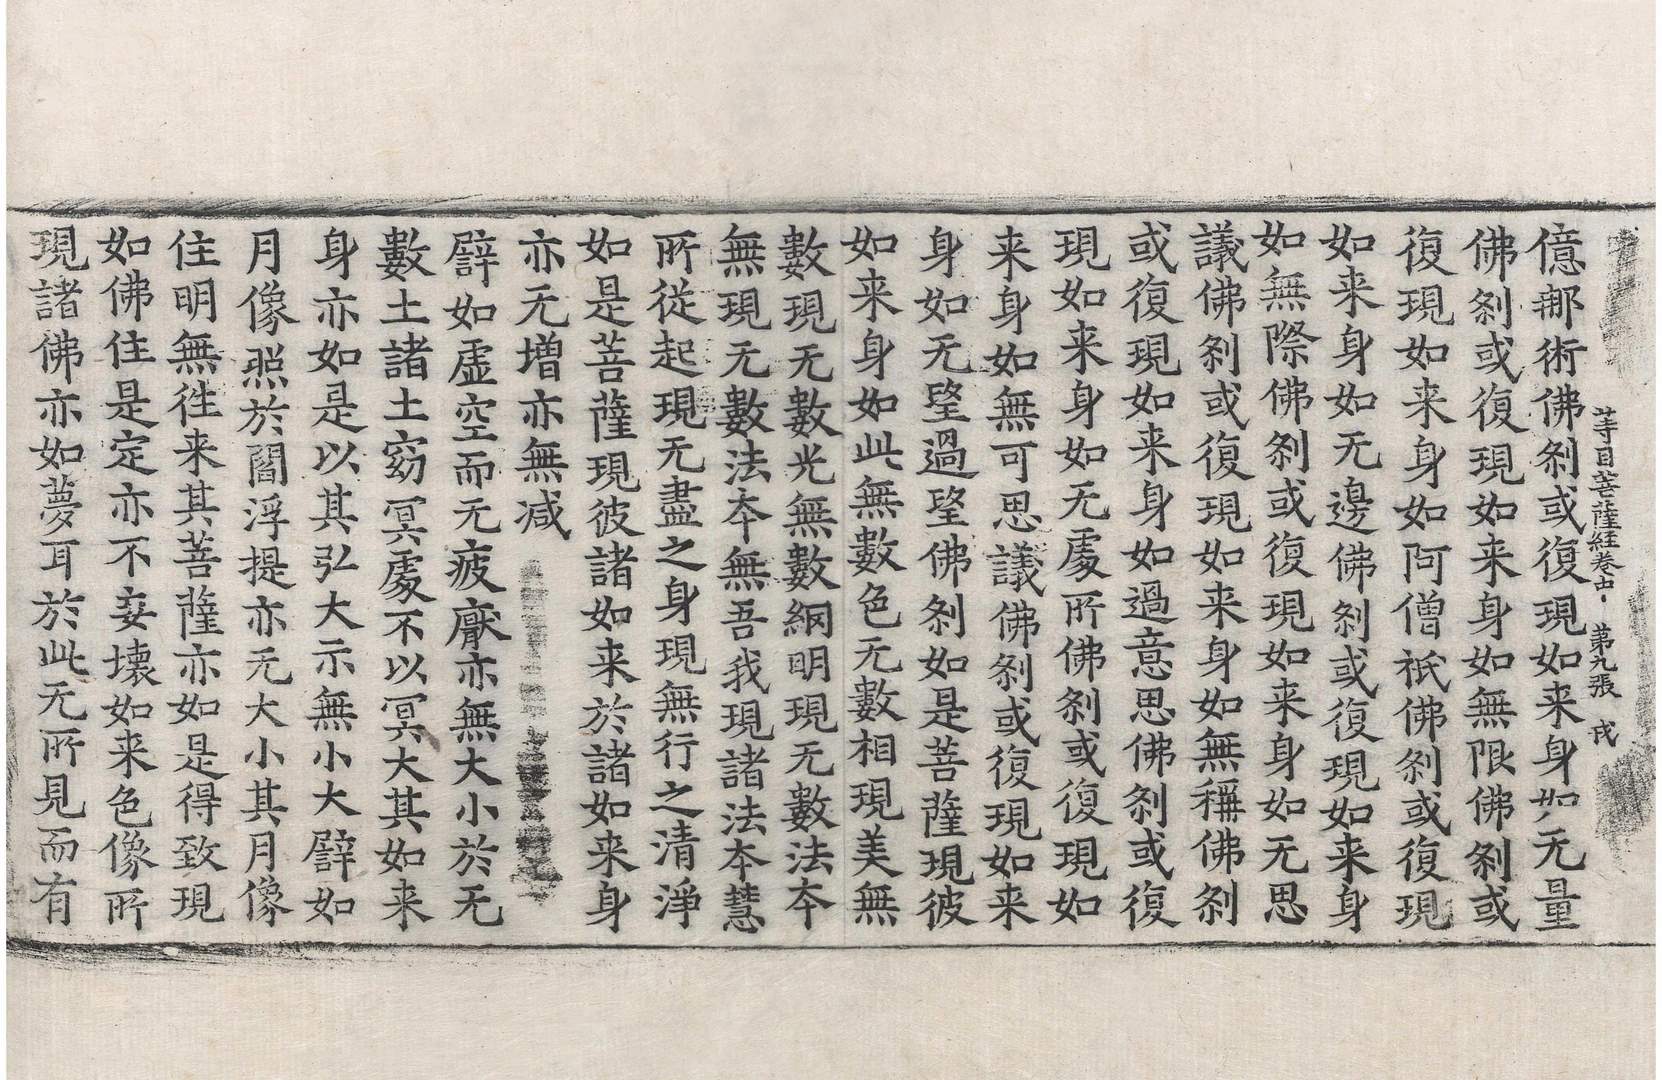 等目菩薩經卷中 第九張 戎
億那術佛剎或復現如来身如无量
佛剎或復現如来身如無限佛剎或
復現如来身如阿僧祇佛剎或復現
如来身如无邊佛剎或復現如来身
如無際佛剎或復現如来身如无思
議佛剎或復現如来身如無稱佛剎
或復現如来身如過意思佛剎或復
現如来身如无處所佛剎或復現如
来身如無可思議佛剎或復現如来
身如无朢過朢佛剎如是菩薩現彼
如来身如此無數色无數相現美無
數現无數光無數網明現无數法夲
無現无數法夲無吾我現諸法夲慧
所從起現无盡之身現無行之清淨
如是菩薩現彼諸如来於諸如来身
亦无增亦無减
譬如虛空而无疲厭亦無大小於无
數土諸土窈冥處不以冥大其如来
身亦如是以其弘大示無小大譬如
月像照於閻浮提亦无大小其月像
住明無徃来其菩薩亦如是得致現
如佛住是定亦不妄壞如来色像所
現諸佛亦如夢耳於此无所見而有